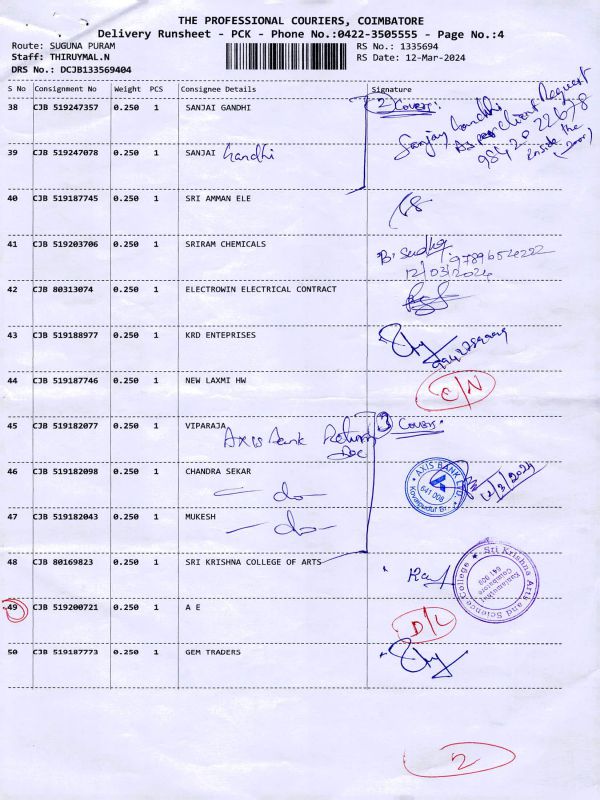 THE PROFESSIONAL COURIERS, COIMBATORE
Delivery Runsheet - PCK - Phone No.:0422-3505555 - Page No.:4
Route: SUGUNA PURAM
RS No.: 1335694
Staff: THIRUYMAL.N
RS Date: 12-Mar-2024
DRS No.: DCJB133569404
S No Consignment No Weight PCS Consignee Details Signature
38 CJB 519247357 0.250 1 SANJAI GANDHI
2 Covers:
Sanjay Gandhi
As per Client Request
98420 22678
Inside the Door
39 CJB 519247078 0.250 1 SANJAI Gandhi
40 CJB 519187745 0.250 1 SRI AMMAN ELE
41 CJB 519203706 0.250 1 SRIRAM CHEMICALS
9789654222
12/03/2024
42 CJB 80313074 0.250 1 ELECTROWIN ELECTRICAL CONTRACT
43 CJB 519188977 0.250 1 KRD ENTEPRISES
44 CJB 519187746 0.250 1 NEW LAXMI HW
C/N
45 CJB 519182077 0.250 1 VIPARAJA
Axis Bank Return Doc
3 Covers:
46 CJB 519182098 0.250 1 CHANDRA SEKAR
— do —
AXIS BANK LTD
641 008
Kovaipudur Br
12/3/2024
47 CJB 519182043 0.250 1 MUKESH
— do —
48 CJB 80169823 0.250 1 SRI KRISHNA COLLEGE OF ARTS
Sri Krishna Arts and Science College
Coimbatore
641 008
49 CJB 519200721 0.250 1 A E
D/L
50 CJB 519187773 0.250 1 GEM TRADERS
2